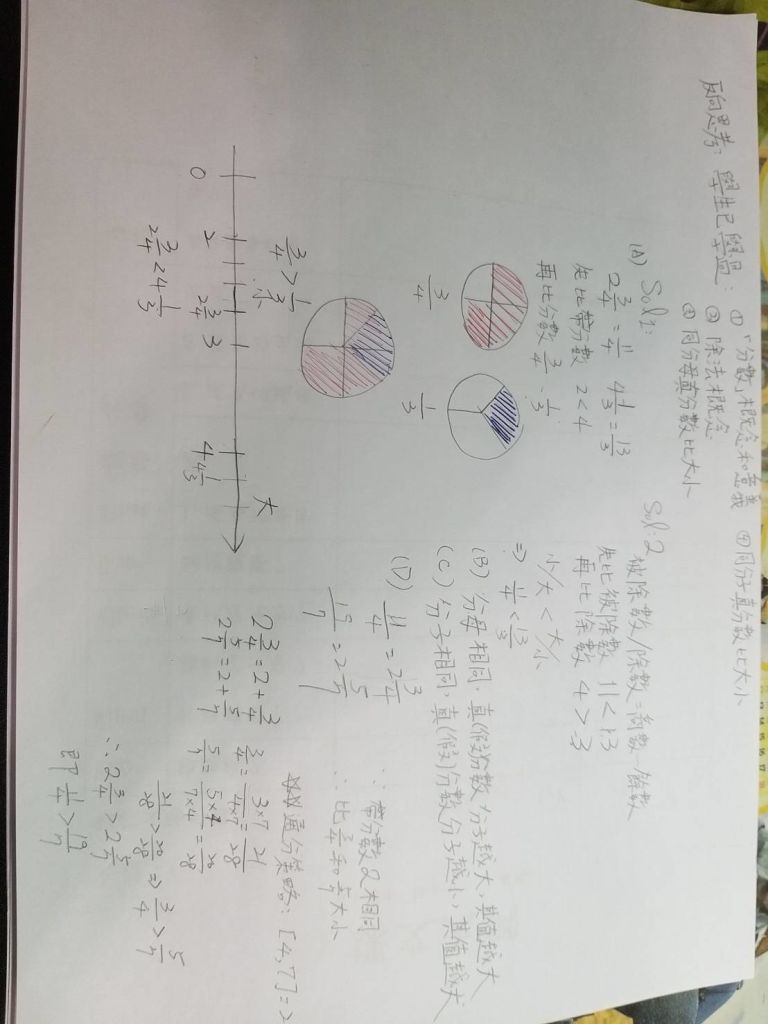 反向思考：學生已學過：①「分數」概念和意義 ④同分子真分數比大小
② 除法概念
③ 同分母真分數比大小
(A) Sol1:
2 3/4 = 11/4 4 1/3 = 13/3
先比帶分數 2 < 4
再比分數 3/4 、 1/3
3/4
1/3
3/4 > 1/3
0 2 2 3/4 3 4 4 1/3 大
2 3/4 < 4 1/3
Sol:2
被除數/除數 = 商數…餘數
先比被除數 11 < 13
再比除數 4 > 3
小/大 < 大/小
⇒ 11/4 < 13/3
(B) 分母相同，真(假)分數分子越大，其值越大
(C) 分子相同，真(假)分數分子越小，其值越大
(D) 11/4 = 2 3/4
19/7 = 2 5/7
∵ 帶分數 2 相同
∴ 比 3/4 和 5/7 大小
通分策略：[4,7]=2
2 3/4 = 2 + 3/4
2 5/7 = 2 + 5/7
3/4 = 3×7/4×7 = 21/28
5/7 = 5×4/7×4 = 20/28
21/28 > 20/28 ⇒ 3/4 > 5/7
∴ 2 3/4 > 2 5/7
即 11/4 > 19/7